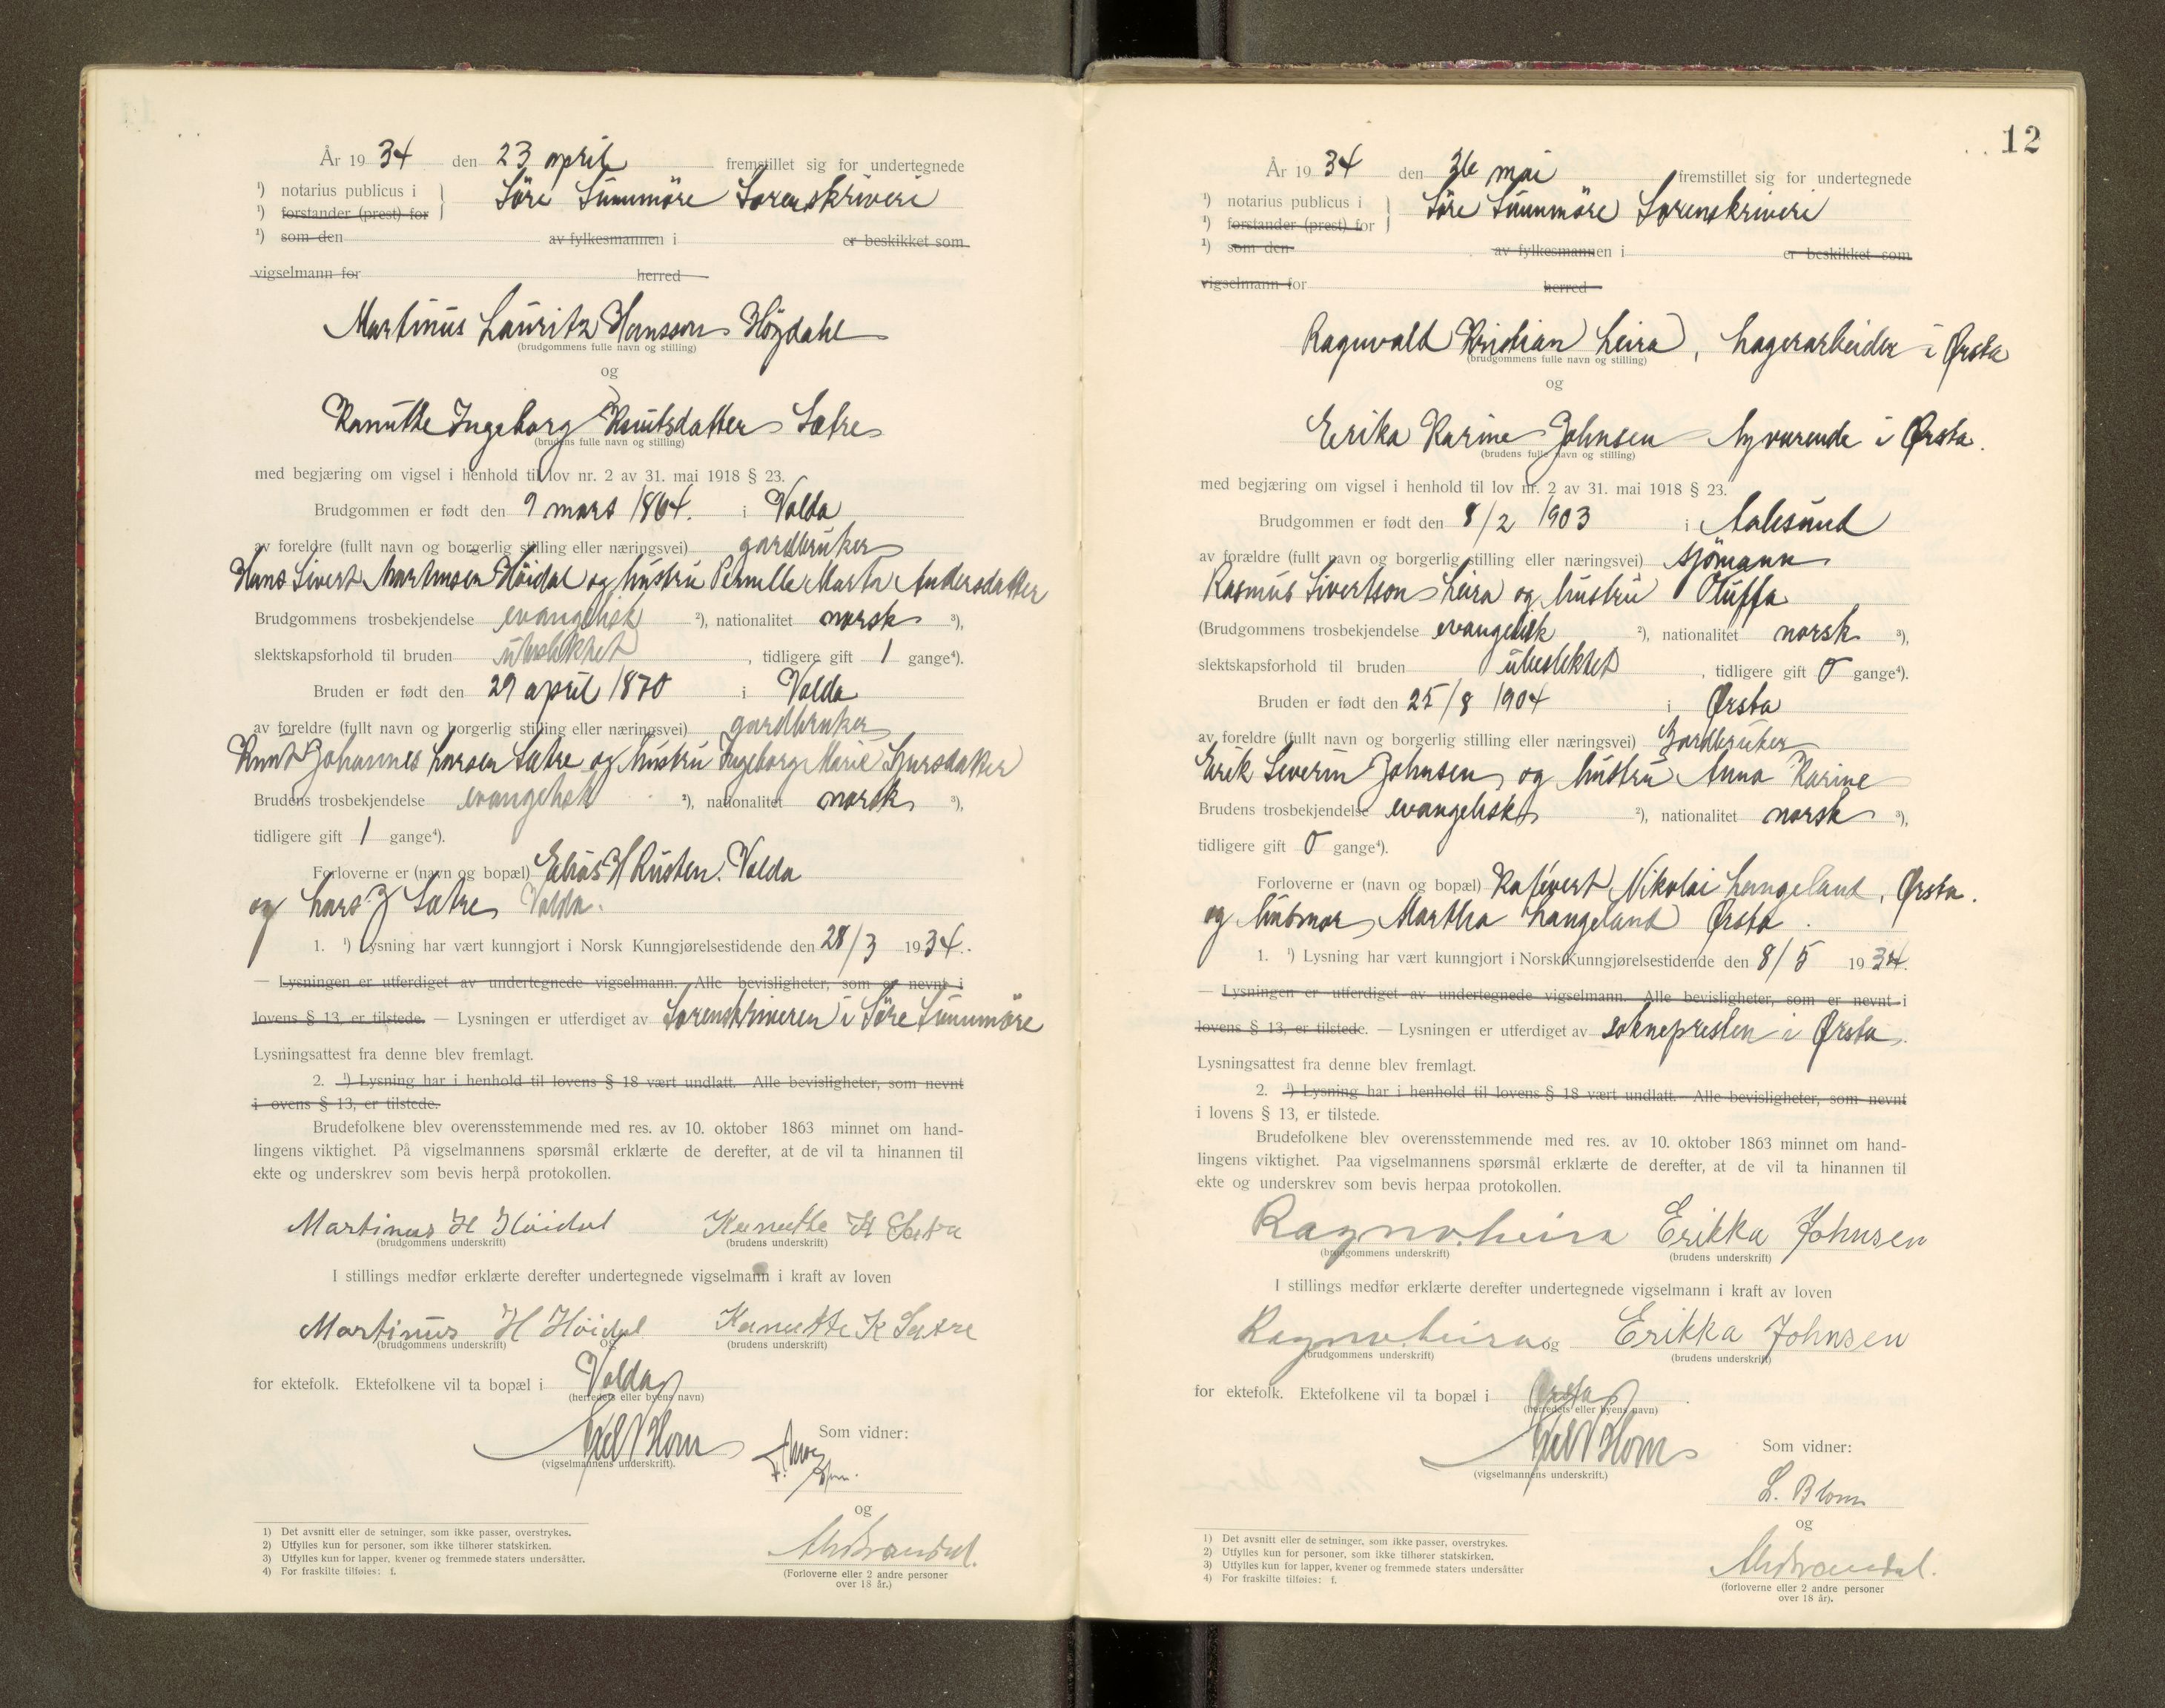 År 1934 den 23 april fremstillet sig for undertegnede
1) notarius publicus i
1) forstander (prest) for
Söre Sunnmöre Sorenskriveri
1) som den av fylkesmannen i er beskikket som
vigselmann for herred
Martinus Lauritz Hansson Högdahl
(brudgommens fulle navn og stilling)
og
Kanutte Ingeborg Knutsdatter Sætre
(brudens fulle navn og stilling)
med begjæring om vigsel i henhold til lov nr. 2 av 31. mai 1918 § 23.
Brudgommen er født den 9 mars 1864. i Volda
av foreldre (fullt navn og borgerlig stilling eller næringsvei) gardbruker
Hans Sivert Martinsen Höidal og hustru Pernille Marta Andersdatter
Brudgommens trosbekjendelse evangelisk 2), nationalitet norsk 3),
slektskapsforhold til bruden ubeslektet, tidligere gift 1 gange4).
Bruden er født den 29 april 1870 i Volda
av foreldre (fullt navn og borgerlig stilling eller næringsvei) gardbruker
Knut Johannes Larsen Sætre og hustru Ingeborg Marie Sjursdatter
Brudens trosbekjendelse evangelisk 2), nationalitet norsk 3),
tidligere gift 1 gange4).
Forloverne er (navn og bopæl) Elias H Rusten. Volda
og Lars J Sætre Volda.
1. 1) Lysning har vært kunngjort i Norsk Kunngjørelsestidende den 28/3 1934.
— Lysningen er utferdiget av undertegnede vigselmann. Alle bevisligheter, som er nevnt i
lovens § 13, er tilstede. — Lysningen er utferdiget av Sorenskriveren i Söre Sunnmöre
Lysningsattest fra denne blev fremlagt.
2. 1) Lysning har i henhold til lovens § 18 vært undlatt. Alle bevisligheter, som nevnt
i ovens § 13, er tilstede.
Brudefolkene blev overensstemmende med res. av 10. oktober 1863 minnet om hand-
lingens viktighet. På vigselmannens spørsmål erklærte de derefter, at de vil ta hinannen til
ekte og underskrev som bevis herpå protokollen.
Martinus H Höidal Kanutte K Sætre
(brudgommens underskrift) (brudens underskrift)
I stillings medfør erklærte derefter undertegnede vigselmann i kraft av loven
Martinus H Höidal og Kanutte K Sætre
(brudgommens underskrift) (brudens underskrift)
for ektefolk. Ektefolkene vil ta bopæl i Volda
(herredets eller byens navn)
Axel Blom
(vigselmannens underskrift).
Som vidner:
og
(Forloverne eller 2 andre personer
over 18 år.)
1) Det avsnitt eller de setninger, som ikke passer, overstrykes.
2) Utfylles kun for personer, som ikke tilhører statskirken.
3) Utfylles kun for lapper, kvener og fremmede staters undersåtter.
4) For fraskilte tilføies: f.
12
År 1934 den 26 mai fremstillet sig for undertegnede
1) notarius publicus i
1) forstander (prest) for
Söre Sunnmöre Sorenskriveri
1) som den av fylkesmannen i er beskikket som
vigselmann for herred
Ragnvald Kristian Leira, lagerarbeider i Ørsta
(brudgommens fulle navn og stilling)
og
Erika Karine Johnsen hjværende i Ørsta.
(brudens fulle navn og stilling)
med begjæring om vigsel i henhold til lov nr. 2 av 31. mai 1918 § 23.
Brudgommen er født den 8/2 1903 i Aalesund
av forældre (fullt navn og borgerlig stilling eller næringsvei) sjömann
Rasmus Sivertson Leira og hustru Oluffa
(Brudgommens trosbekjendelse evangelisk 2), nationalitet norsk 3),
slektskapsforhold til bruden ubeslektet, tidligere gift 0 gange4).
Bruden er født den 25/8 1904 i Ørsta
av foreldre (fullt navn og borgerlig stilling eller næringsvei) Gardbruker
Erik Severin Johnsen og hustru Anna Karine
Brudens trosbekjendelse evangelisk 2), nationalitet norsk 3),
tidligere gift 0 gange4).
Forloverne er (navn og bopæl) Kafévert Nikolai Langeland, Ørsta.
og husmor Martha Langeland Ørsta.
1. 1) Lysning har vært kunngjort i Norsk Kunngjørelsestidende den 8/5 1934.
— Lysningen er utferdiget av undertegnede vigselmann. Alle bevisligheter, som er nevnt i
lovens § 13, er tilstede. — Lysningen er utferdiget av soknepresten i Ørsta.
Lysningsattest fra denne blev fremlagt.
2. 1) Lysning har i henhold til lovens § 18 vært undlatt. Alle bevisligheter, som nevnt
i lovens § 13, er tilstede.
Brudefolkene blev overensstemmende med res. av 10. oktober 1863 minnet om hand-
lingens viktighet. Paa vigselmannens spørsmål erklærte de derefter, at de vil ta hinannen til
ekte og underskrev som bevis herpaa protokollen.
Ragnv. Leira Erikka Johnsen
(brudgommens underskrift) (brudens underskrift)
I stillings medfør erklærte derefter undertegnede vigselmann i kraft av loven
Ragnv. Leira og Erikka Johnsen
(brudgommens underskrift) (brudens underskrift)
for ektefolk. Ektefolkene vil ta bopæl i Ørsta
(herredets eller byens navn)
Axel Blom
(vigselmannens underskrift.)
Som vidner:
L. Blom
og
(forloverne eller 2 andre personer
over 18 år).
1) Det avsnitt eller de setninger, som ikke passer, overstrykes.
2) Utfylles kun for personer, som ikke tilhører statskirken.
3) Utfylles kun for lapper, kvener og fremmede staters undersåtter
4) For fraskilte tilføies: f.